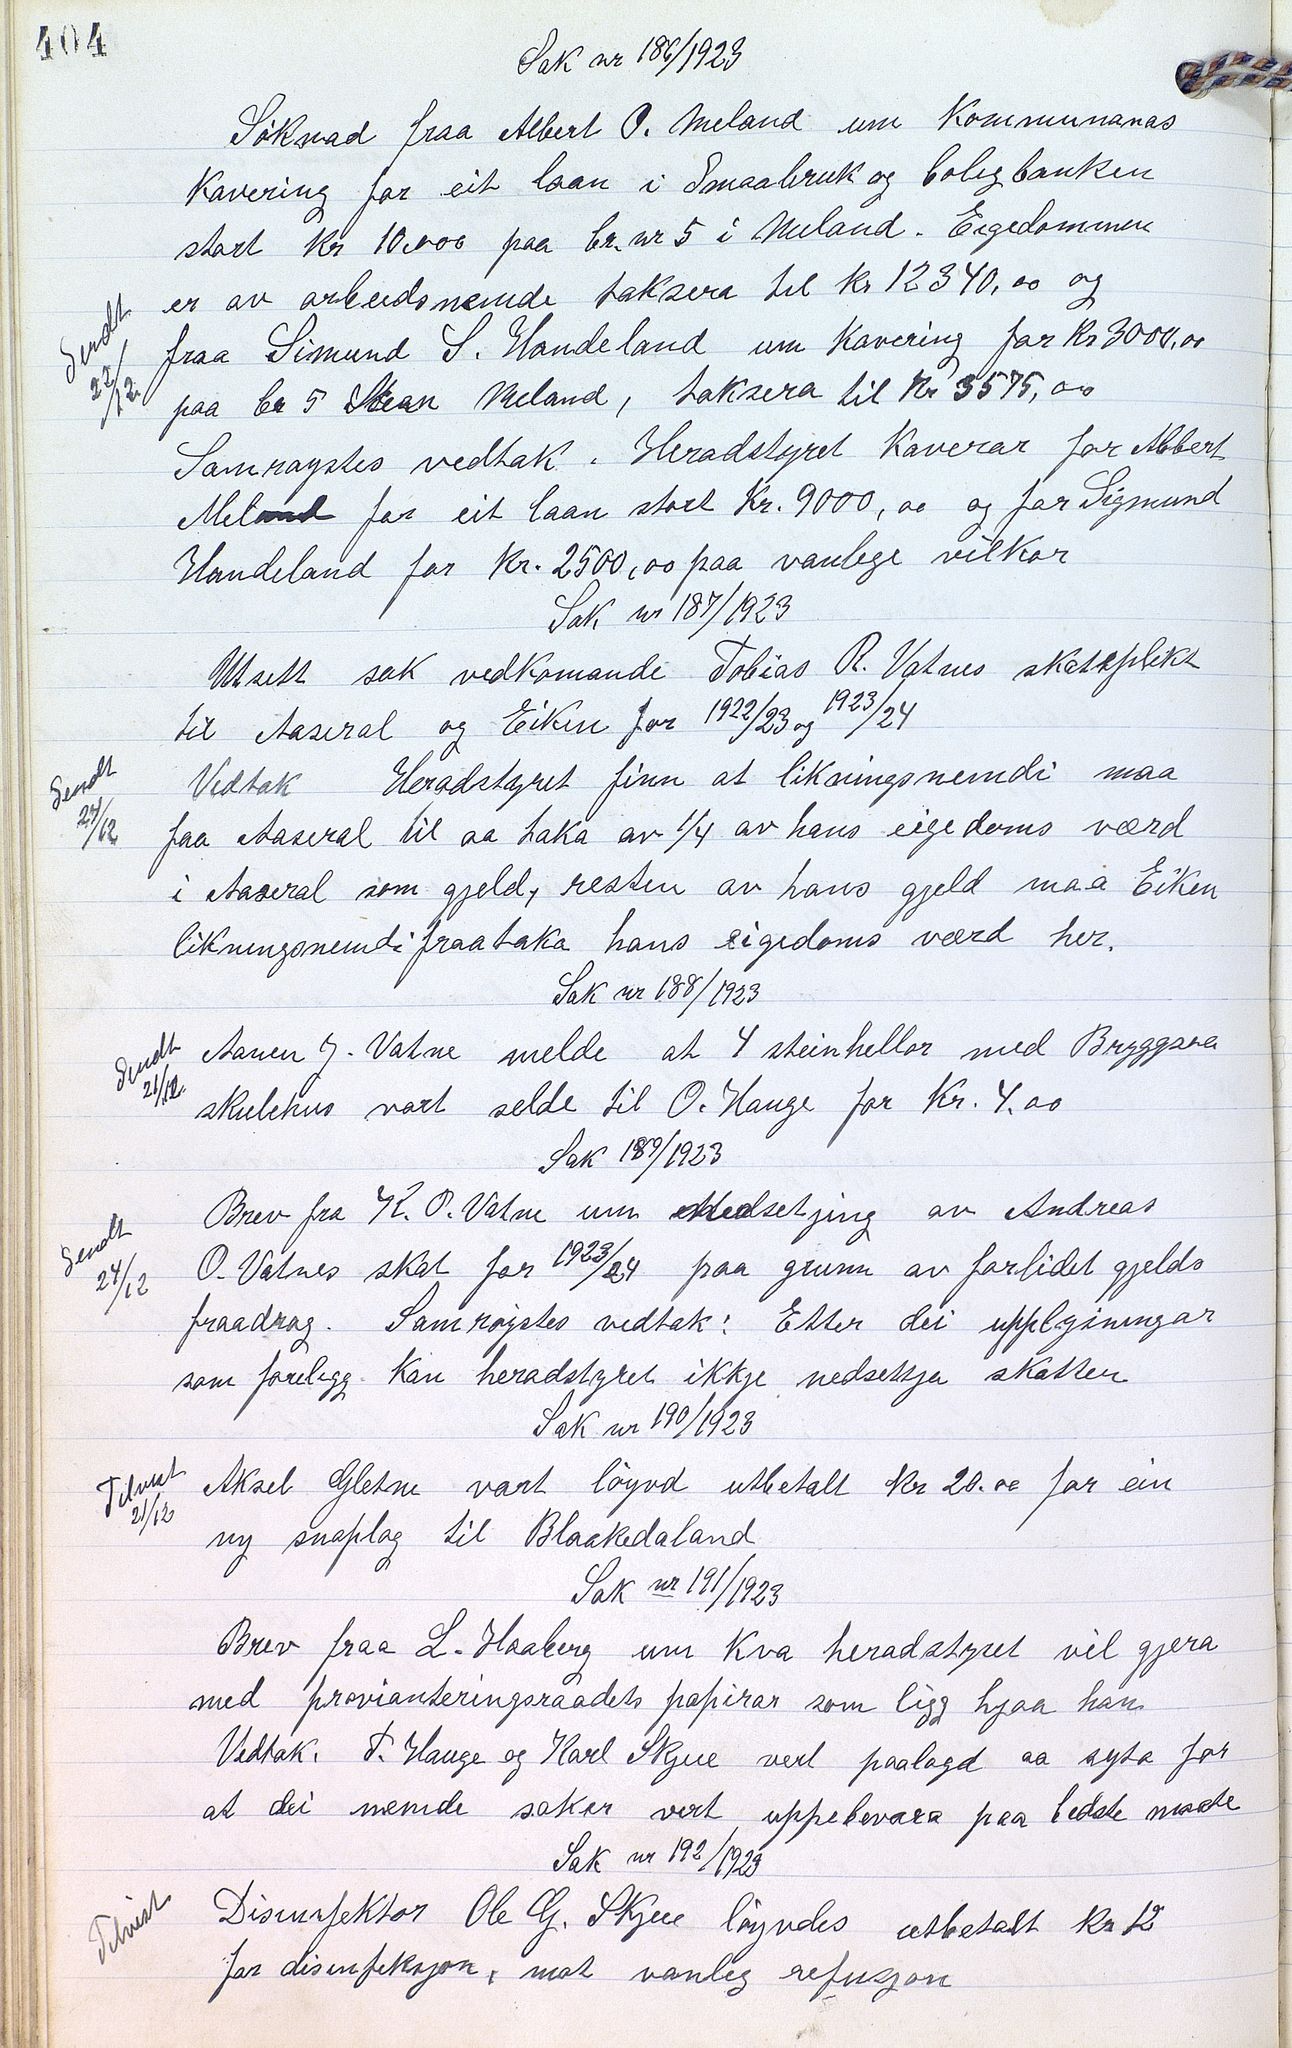 404
Sak nr 186/1923
Söknad fraa Albert O. Meland um Kommunanas
Kavering for eit laan i Smaabruk og boligbanken
stort Kr 10.000 paa br. nr 5 i Meland. Eigedommen
er av arbeidsnemde taksera til Kr 12340,00 og
Sendt 22/12
fraa Simund S. Handeland um Kavering for Kr 3000,00
paa br 5 Meland, taksera til Kr 3575,00
Samröystes vedtak. Heradstyret Kaverar for Albert
Meland for eit laan stort Kr. 9000,00 og for Sigmund
Handeland for Kr. 2500,00 paa vanlege vilkor
Sak nr 187/1923
Utsett sak vedkomande Tobias R. Vatnes skatteplikt
til Aaseral og Eiken for 1922/23 og 1923/24
Sendt 24/12
Vedtak Heradstyret finn at likningsnemdi maa
faa Aaseral til aa taka av 1/4 av hans eigedoms værd
i Aaseral som gjeld, resten av hans gjeld maa Eiken
likningsnemdi fraataka hans eigedoms værd her.
Sak nr 188/1923
Sendt 21/12.
Aanen J. Vatne melde at 4 steinhellor med Bryggsaa
skulehus vart selde til O. Hauge for Kr. 4.00
Sak 189/1923
Sendt 24/12
Brev fra K. O. Vatne um Nedsetjing av Andreas
O. Vatnes skat for 1923/24 paa grunn av forlidet gjelds
fraadrag. Samröystes vedtak: Etter dei upplysningar
som forelegg Kan heradstyret ikkje nedsetja skatten
Sak nr 190/1923
Tilvist 21/12
Aksel Gletne vart löyvd utbetalt Kr 20.00 for ein
ny snøplog til Blaakedaland
Sak nr 191/1923
Brev fraa L. Haaberg um Kva heradstyret vil gjera
med provianteringsraadets papirar som ligg hjaa han
Vedtak. T. Hauge og Karl Skjee vert paalagd aa syta for
at dei nemde saker vert uppebevara paa bedste maate
Sak nr 192/1923
Tilvist
Disinfektor Ole G. Skjee löyvdes utbetalt Kr 12
for disinfeksjon, mot vanleg refusjon